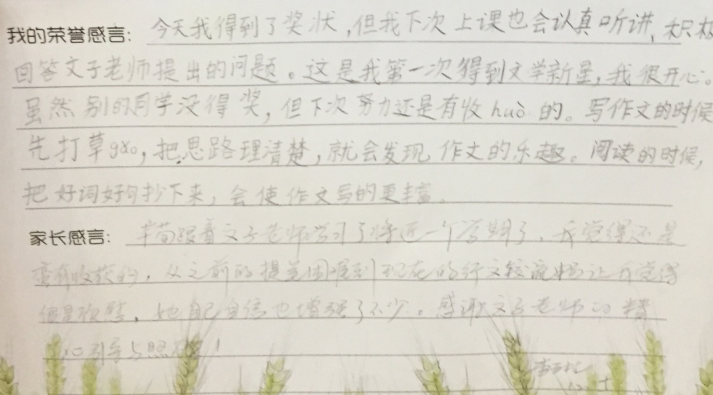 我的荣誉感言：今天我得到了奖状，但我下次上课也会认真听讲，积极
回答文子老师提出的问题。这是我第一次得到文学新星，我很开心。
虽然别的同学没得奖，但下次努力还是有收huò的。写作文的时候
先打草gǎo，把思路理清楚，就会发现作文的乐趣。阅读的时候，
把好词好句抄下来，会使作文写的更丰富。
家长感言：跟着文子老师学习了将近一个学期了，我觉得还是
蛮有收获的，从之前的提笔困难到现在的行文较流畅让我觉得
很是欣慰，她自己自信也增强了不少。感谢文子老师的精
心引导与照顾！